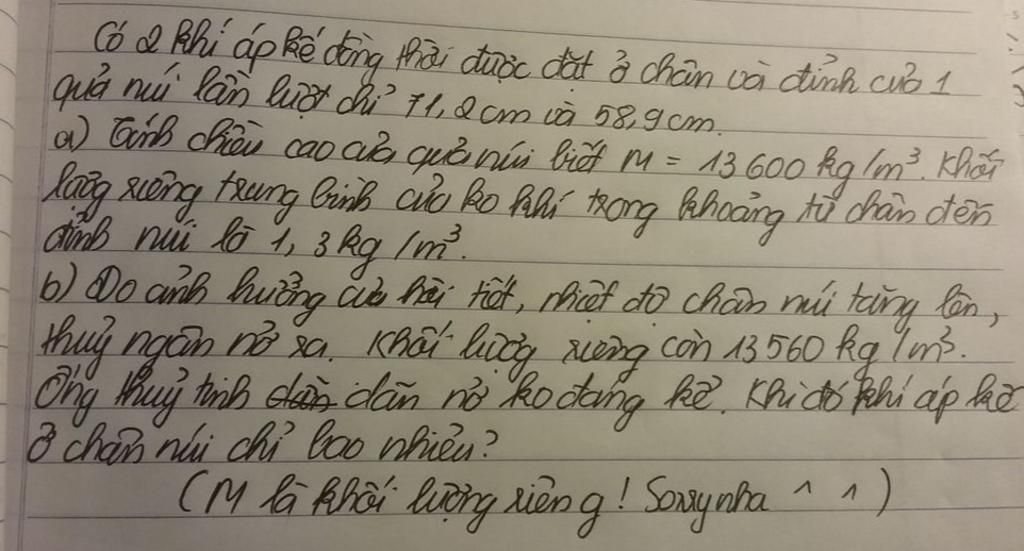 Có 2 khí áp kế đồng thời được đặt ở chân và đỉnh của 1
quả núi lần lượt chỉ 71,2cm và 58,9cm.
a) Tính chiều cao của quả núi biết M = 13600 kg/m³. Khối
lượng riêng trung bình của ko khí trong khoảng từ chân đến
đỉnh núi là 1,3kg/m³.
b) Do ảnh hưởng của thời tiết, nhiệt độ chân núi tăng lên,
thuỷ ngân nở ra. Khối lượng riêng còn 13560kg/m³.
Ống thuỷ tinh dãn nở ko đáng kể. Khi đó khí áp kế
ở chân núi chỉ bao nhiêu?
(M là khối lượng riêng! Sorry nha ^ ^)